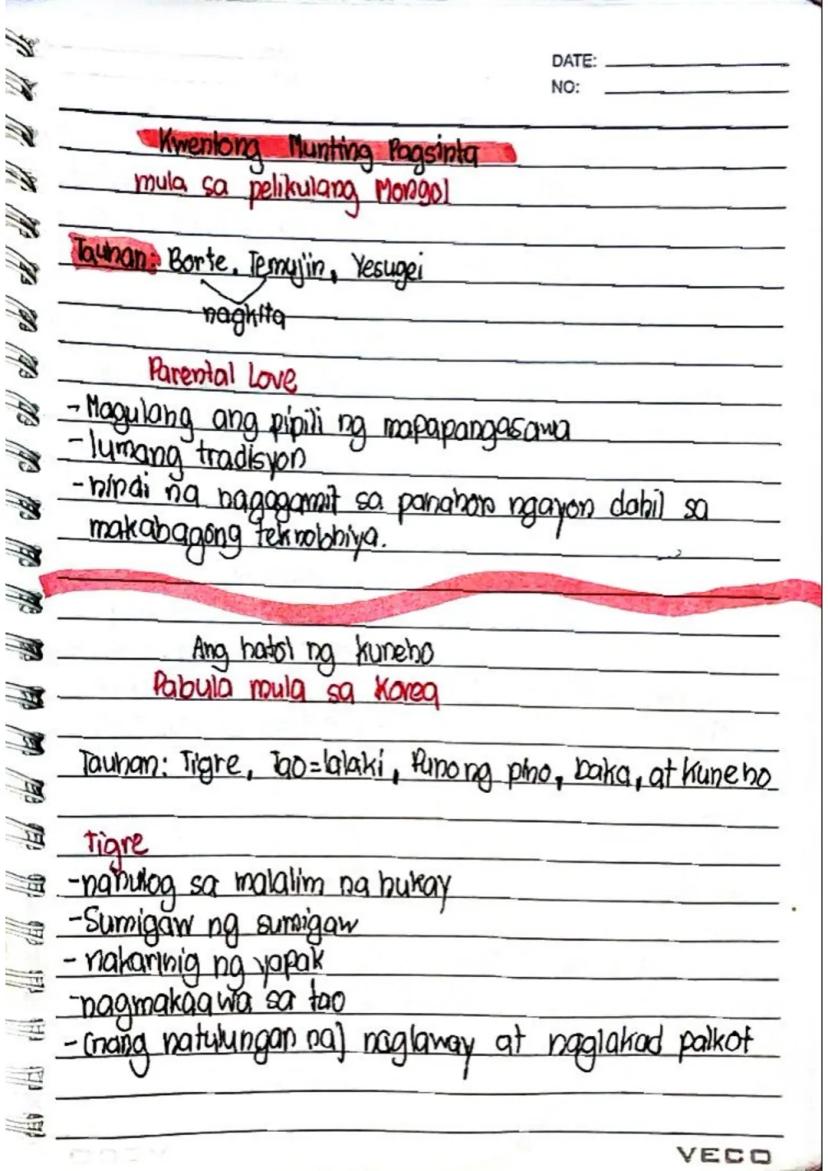 DATE:
NO:
Kwentong Munting Pagsinta
mula sa pelikulang Mongol
Tauhan: Borte, Temujin, Yesugei
nagkita
Parental Love
- Magulang ang pipili ng mapapangasawa
- lumang tradisyon
- hindi na nagagamit sa panahon ngayon dahil sa
makabagong teknolohiya.
Ang hatol ng kuneho
Pabula mula sa Korea
Tauhan: Tigre, Tao=lalaki, Punong pino, baka, at kuneho
Tigre
- nahulog sa malalim na hukay
- Sumigaw ng sumigaw
- nakarinig ng yapak
- nagmakaawa sa tao
- (nang natulungan na) naglaway at naglakad paikot
VECO